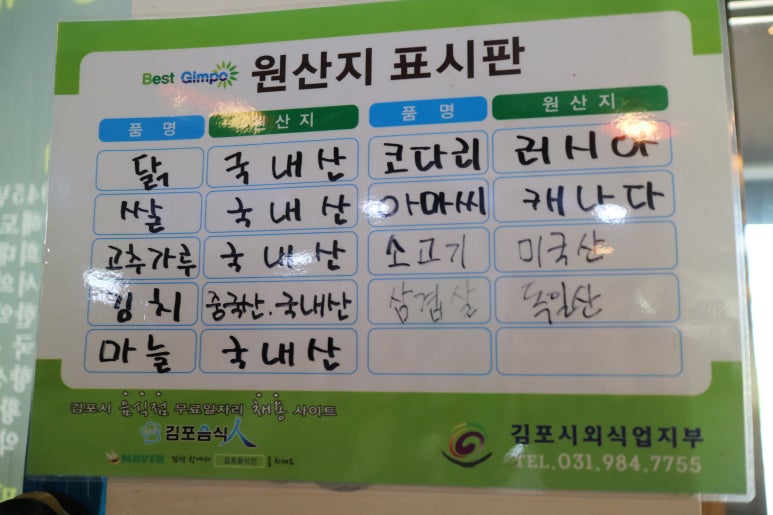 Best Gimpo 원산지 표시판
품명 원산지 품명 원산지
닭 국내산 코다리 러시아
쌀 국내산 아마씨 캐나다
고추가루 국내산 소고기 미국산
김치 중국산.국내산 삼겹살 독일산
마늘 국내산
김포시 음식점 무료일자리 채용 사이트
김포음식人
NAVER 검색창에서 김포음식인 을 치세요
김포시외식업지부
TEL.031.984.7755